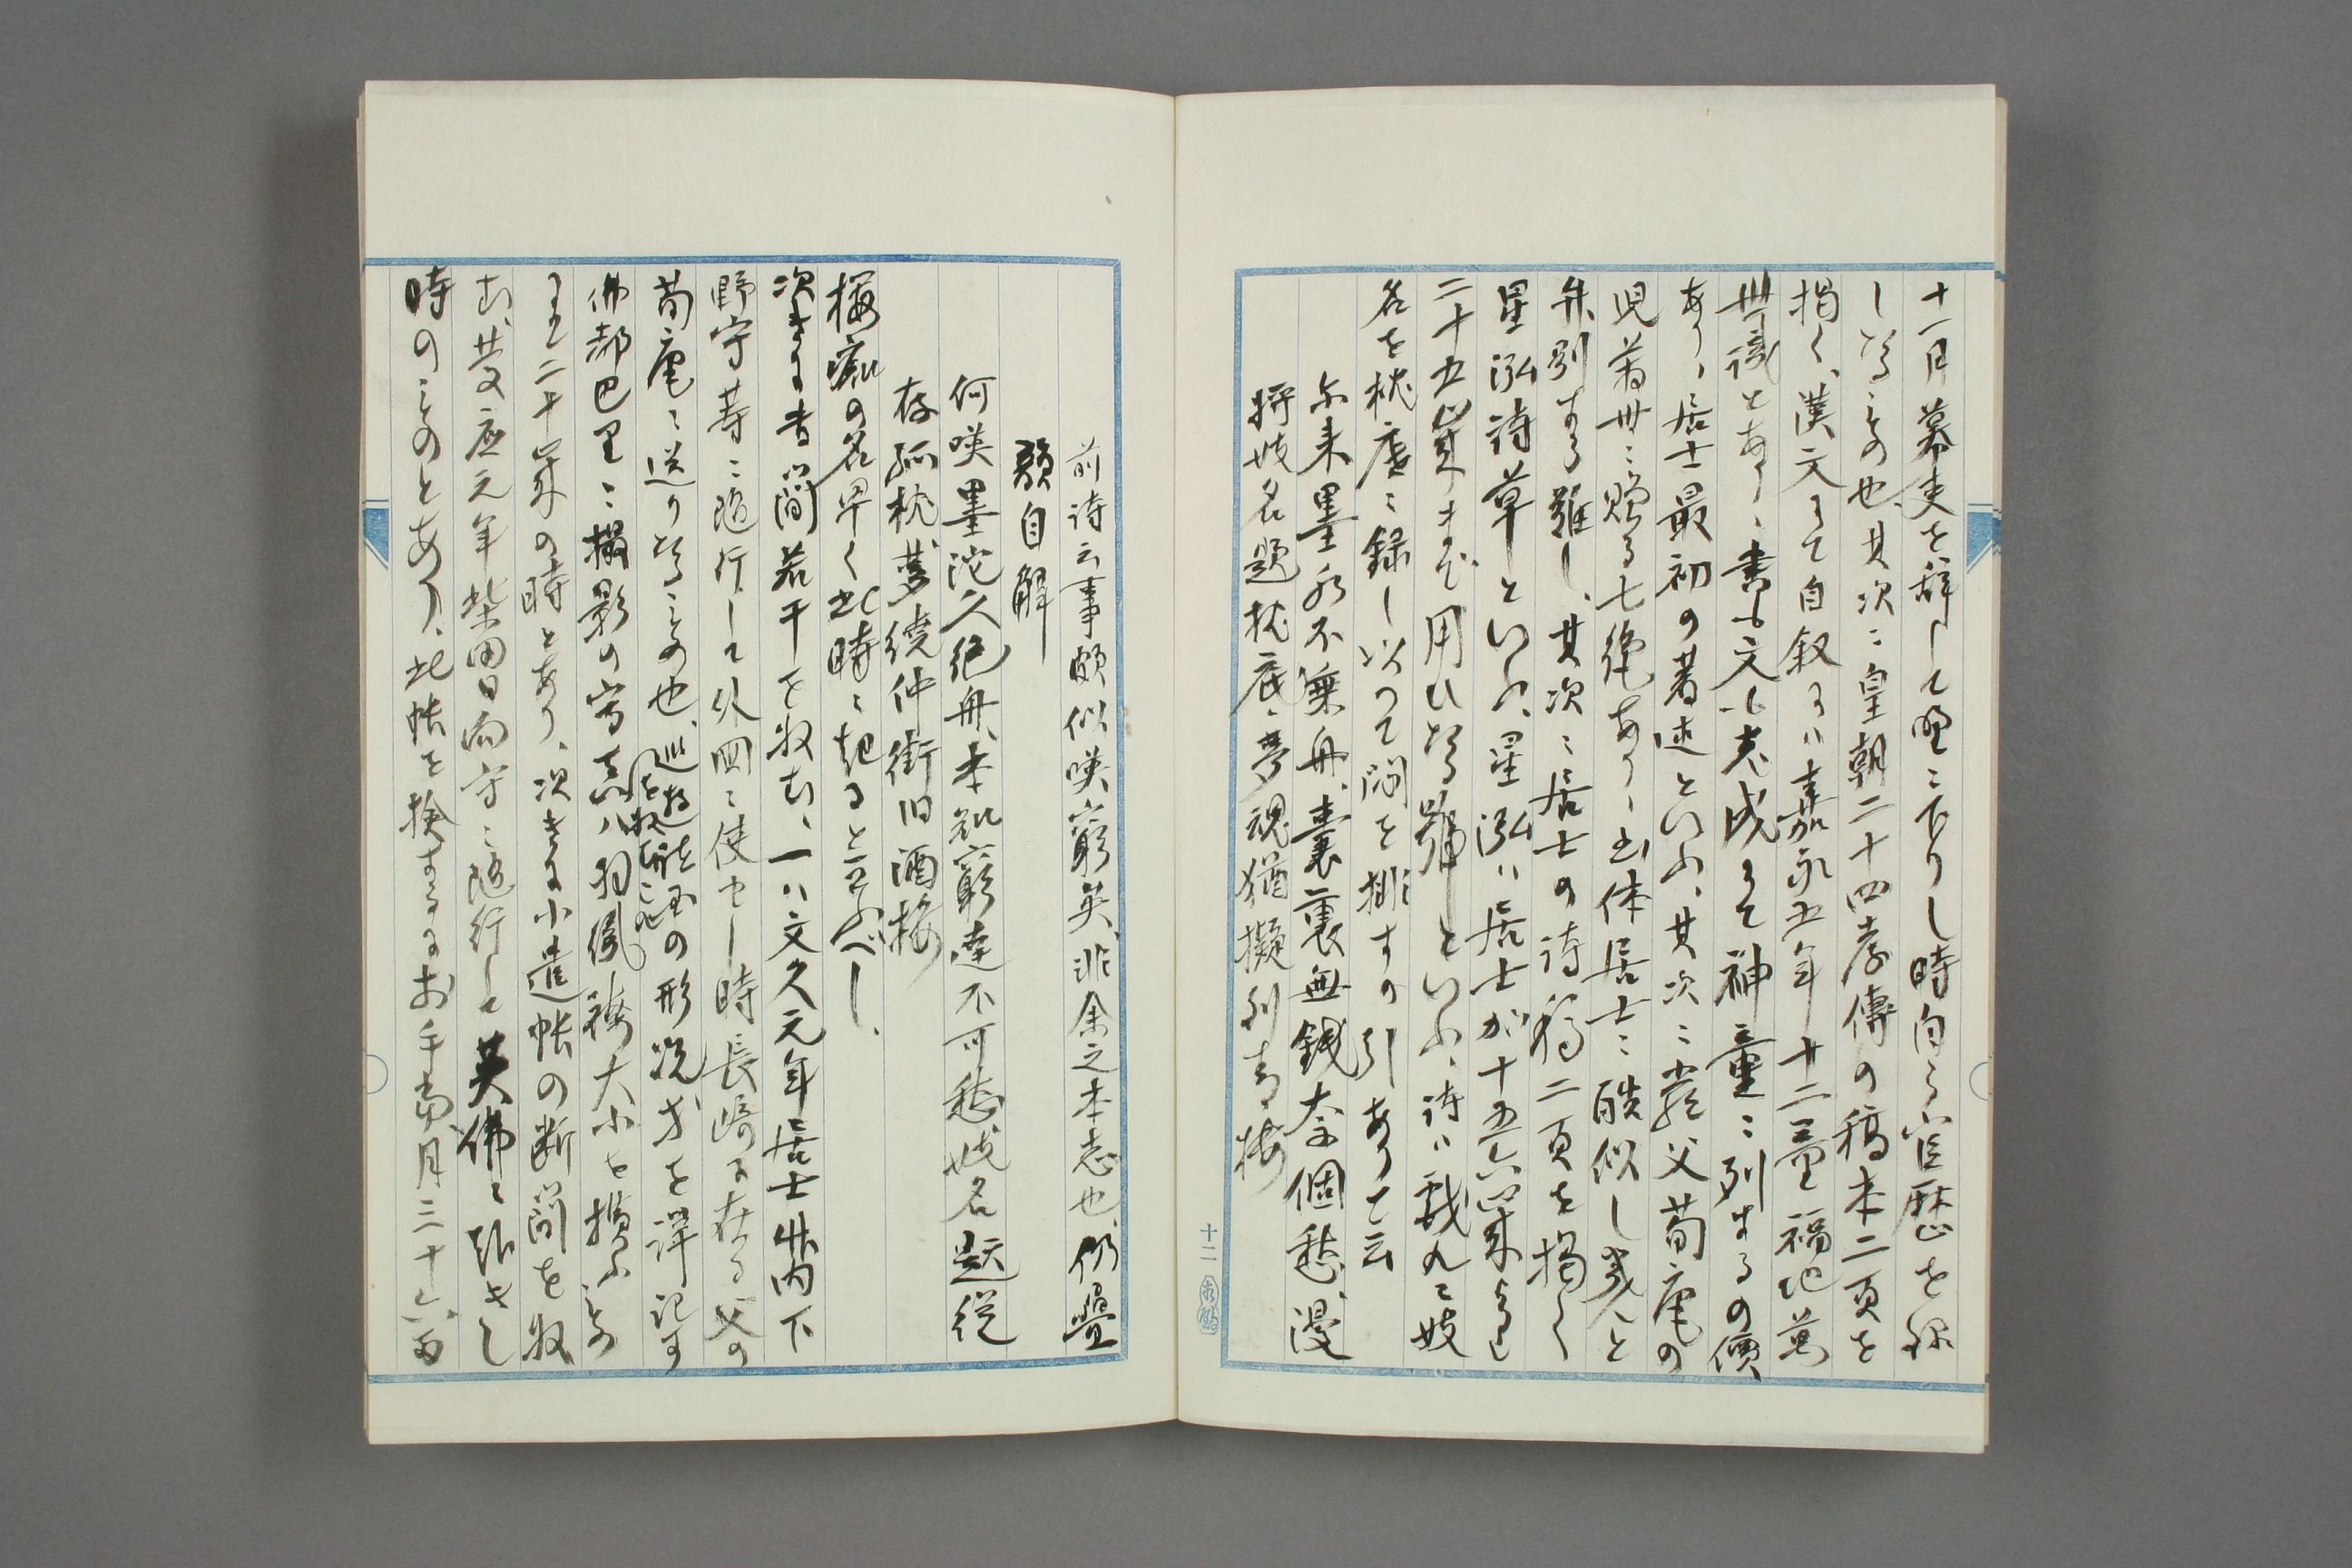 十一月幕吏を辞して野に下りし時自ら官歴を録
したるもの也、其次に皇朝二十四孝傳の稿本二頁を
掲く、漢文にて自叙には嘉永五年十二童福地萬
世識とあり、書も文も老成にて神童に列するの價
あり、居士最初の著述といふ、其次に嚴父苟庵の
児萬世に贈る七絶あり、書体居士に酷似し幾んと
弁別する難し、其次に居士の詩稿二頁を掲く
星泓詩草といふ、星泓は居士が十五六歳より
二十五歳まで用ひたる号といふ、詩は戯れに妓
名を枕底に録し以つて悶を排すの引ありて云
尓来墨水不無舟、嚢裏無銭奈個愁、漫
将妓名題枕底、夢魂猶擬到青楼
前詩云事頗似咲窮矣、非余之本志也、仍畳
韻自解
何咲墨沱久絶舟、本知窮達不可愁、妓名題従
存孤枕、夢繞仲街旧酒楼
桜痴の名早く此時に起ると云ふべし、
次きに書簡若干を収む、一は文久元年居士竹内下
野守等に随行して外国に使せし時長崎に在る父の
苟庵に送りたるもの也、巡遊諸国の形況才を詳記す
佛都巴里に撮影の写真は羽織袴大小を横ふもの
にて二十歳の時とあり、次きに小遣帳の断簡を収
む、慶応元年柴田日向守に随行して英佛に赴きし
時のものとあり、此帳を検するにお手当月三十六両